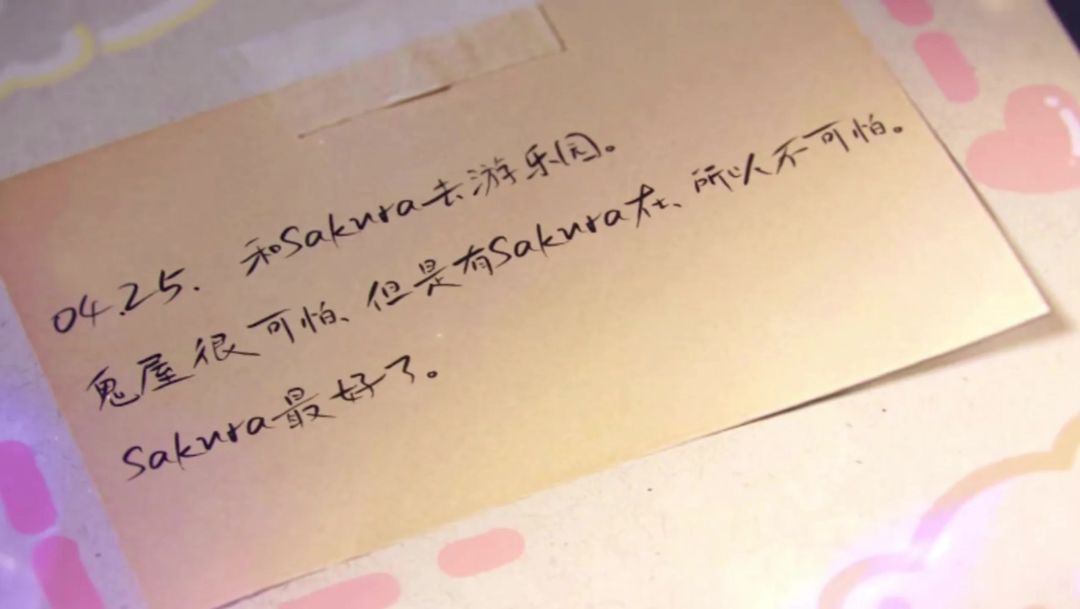 04.25. 和Sakura去游乐园。
鬼屋很可怕、但是有Sakura在、所以不可怕。
Sakura最好了。